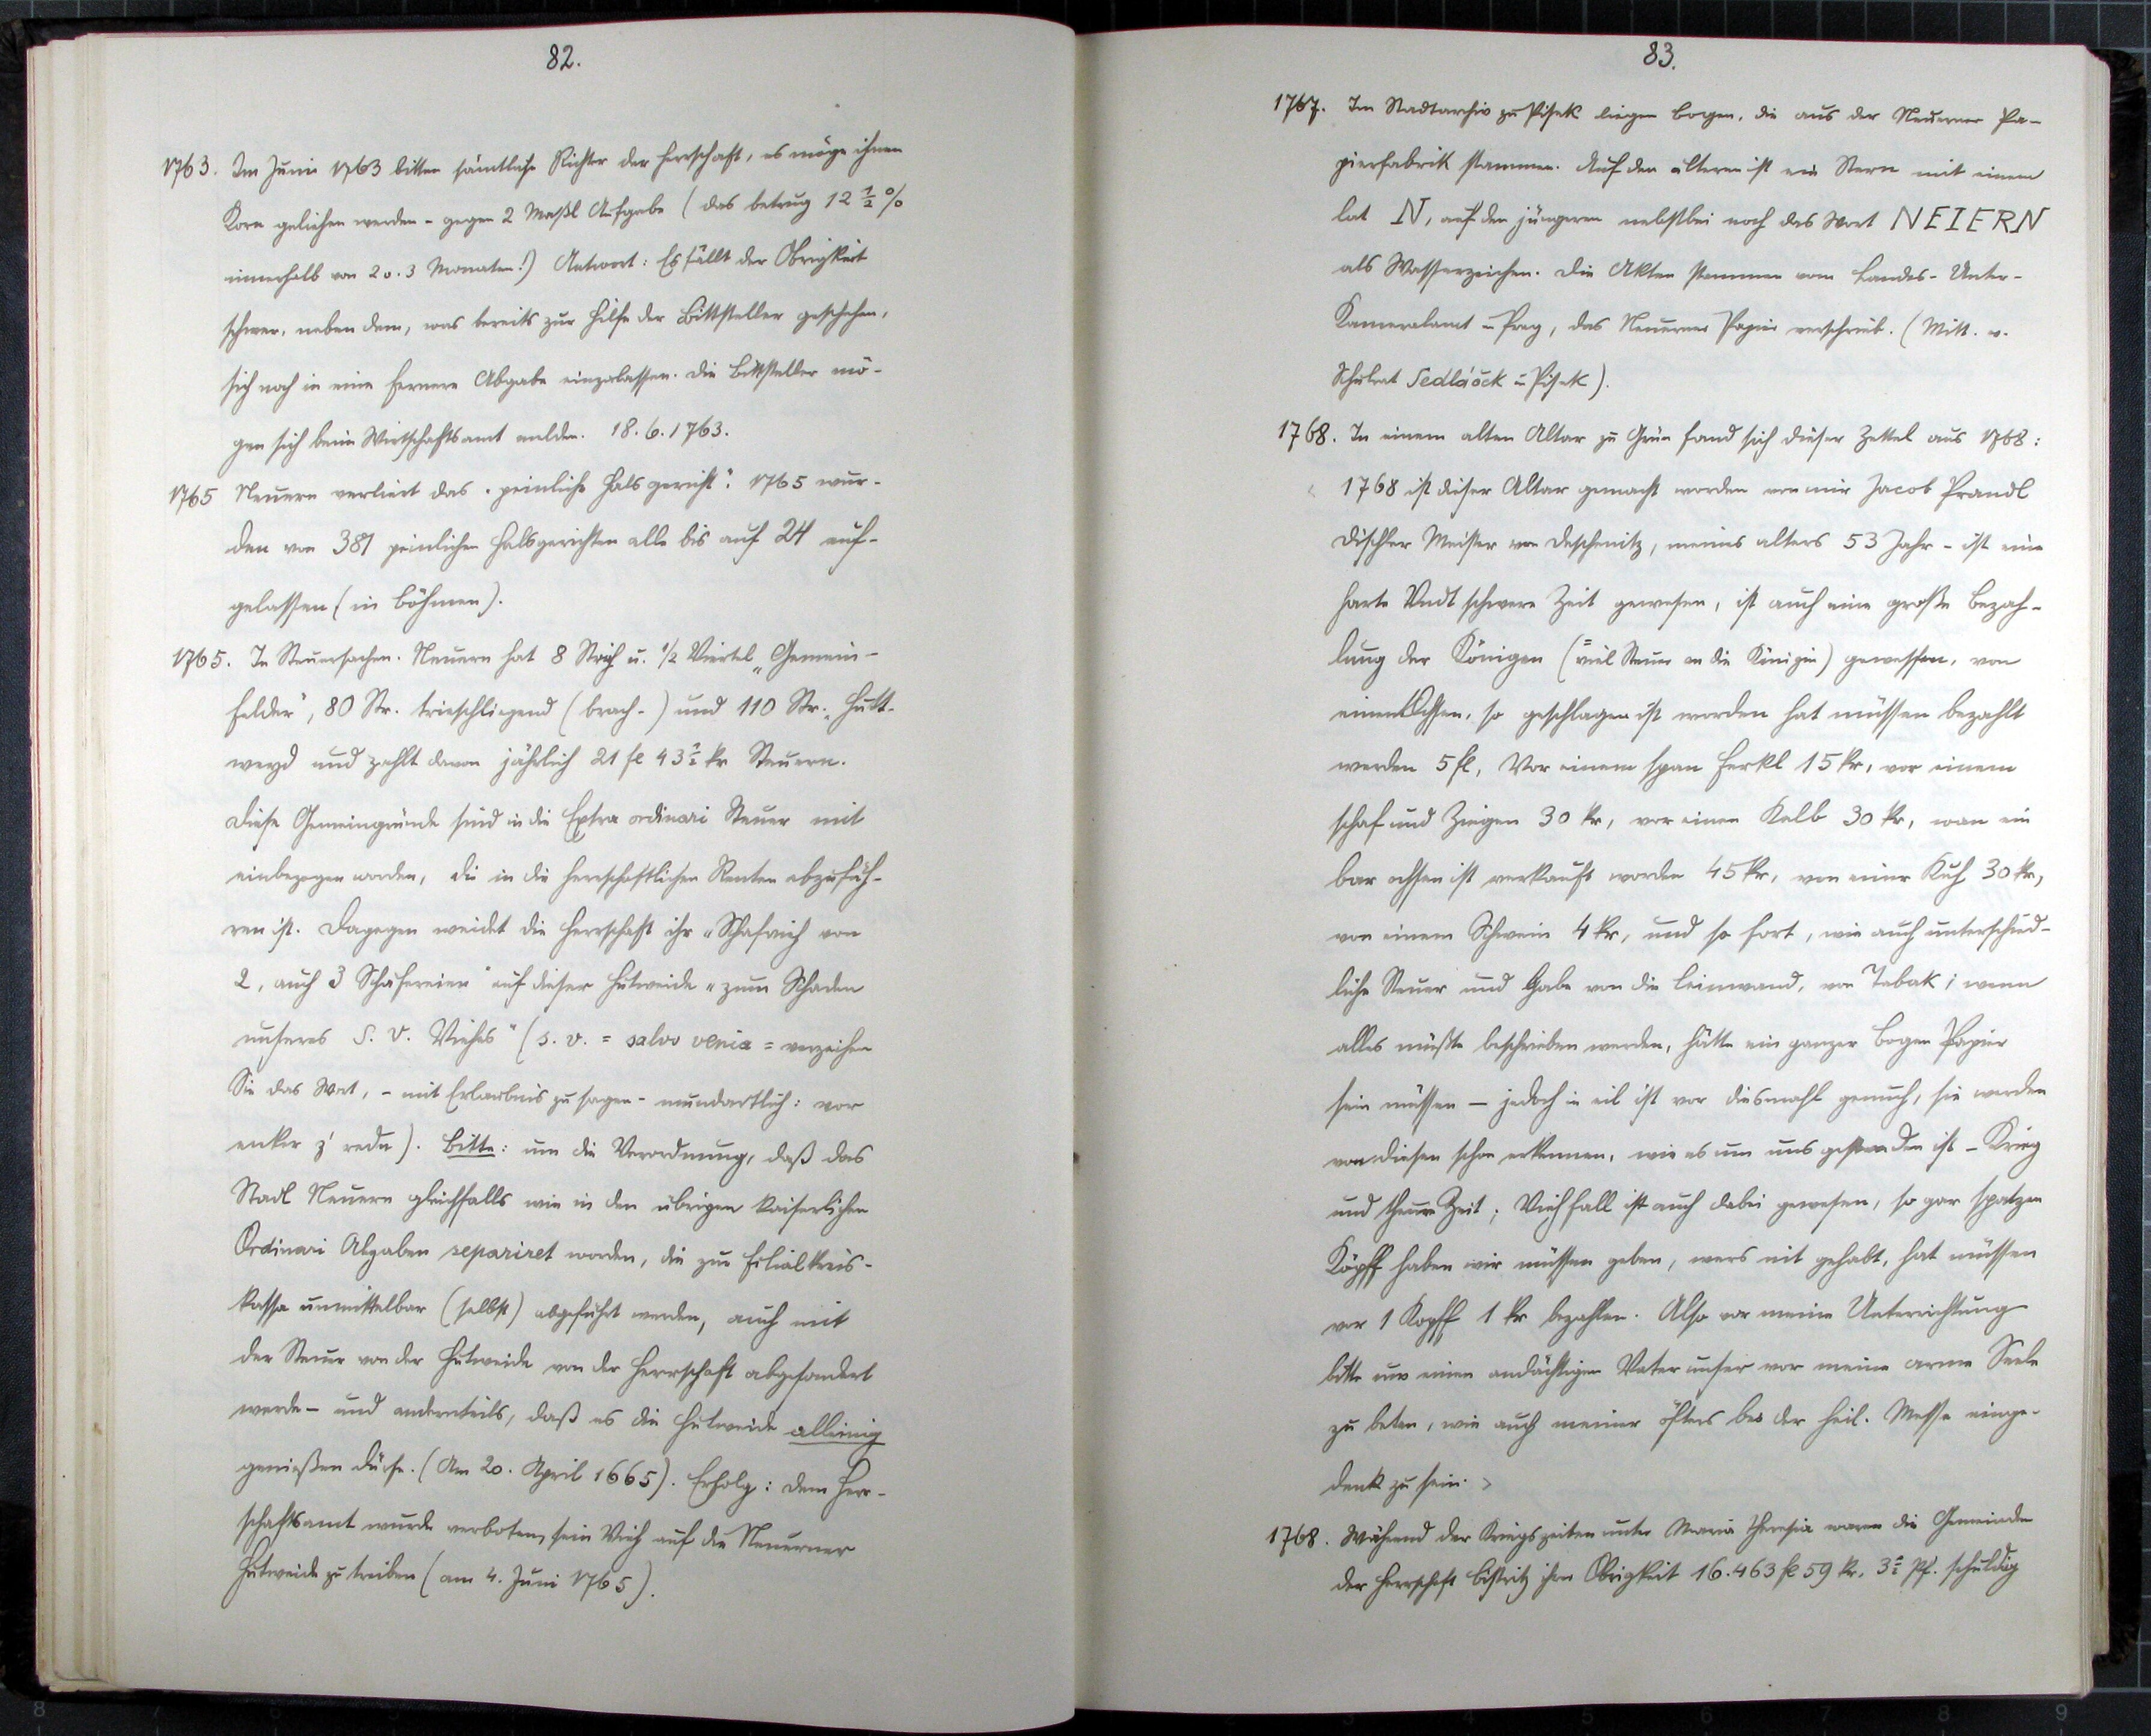 82.
1763. Im Juni 1763 bitten sämtliche Richter der Herrschaft, es möge ihnen
Korn geliehen werden - gegen 2 Maßl Aufgabe (das betrug 12 ½ %
innerhalb von 2 o. 3 Monaten!) Antwort: Es fällt der Obrigkeit
schwer, neben dem, was bereits zur Hilfe der Bittsteller geschehen,
sich noch in eine fernere Abgabe einzulassen. Die Bittsteller mö-
gen sich beim Wirtschaftsamt melden. 18. 6. 1763.
1765 Neuern verliert das „peinliche Halsgericht“. 1765 wur-
den von 381 peinlichen Halsgerichten alle bis auf 24 auf-
gelassen (in Böhmen).
1765. In Steuersachen. Neuern hat 8 Strich u. ½ Viertel „Gemein-
felder“, 80 Str. trieschliegend (brach-) und 110 Str. „Hutt-
weyd und zahlt davon jährlich 21 fl 43 ½ kr Steuern.
Diese Gemeingründe sind in die Extra ordinari Steuer mit
einbezogen worden, die in die herrschaftlichen Renten abzufüh-
ren ist. Dagegen weidet die Herrschaft ihr „Schafvieh von
2, auch 3 Schäfereien“ auf dieser Hutweide „zum Schaden
unseres S. V. Viehes“ (s. v. = salvo venia = verzeihen
Sie das Wort, - mit Erlaubnis zu sagen - mundartlich: vor
enker z' redn). Bitte: um die Verordnung, daß das
Stadl Neuern gleichfalls wie in den übrigen kaiserlichen
Ordinari Abgaben separiret worden, die zur Filialkreis-
kassa unmittelbar (selbst) abgeführt werden, auch mit
der Steuer von der Hutweide von der Herrschaft abgesondert
werde - und andernteils, daß es die Hutweide alleinig
genießen dürfe. (Am 20. April 1665). Erfolg: dem Herr-
schaftsamt wurde verboten, sein Vieh auf die Neuerner
Hutweide zu treiben (am 4. Juni 1765).
83.
1767. Im Stadtarchiv zu Pisek liegen Bogen, die aus der Neuerner Pa-
pierfabrik stammen. Auf den älteren ist ein Stern mit einem
lat N, auf den jüngeren nebstbei noch das Wort NEIERN
als Wasserzeichen. Die Akten stammen vom Landes-Unter-
Kameralamt in Prag, das Neuerner Papier verschrieb. (Mitt. v.
Schulrat Sedláček in Pisek).
1768. In einem alten Altar zu Grün fand sich dieser Zettel aus 1768:
< 1768 ist dieser Altar gemacht worden von mir Jacob Prandl
Dischler Meister von Deschenitz, meines alters 53 Jahr - ist eine
harte Undt schwere Zeit gewesen, ist auch eine große Bezah-
lung der Königen (= viel Steuer an die Königin) gewessen, von
einen Ochsen, so geschlagen ist worden hat müssen bezahlt
werden 5 fl, Vor einem span Ferkl 15 kr, vor einem
schaf und Ziegen 30 kr, vor einen Kalb 30 kr, wan ein
bar ochsen ist verkauft worden 45 kr, von einer Kuh 30 kr,
von einem Schwein 4 kr, und so fort, wie auch unterschied-
liche Steuer und Gabe von die Leinwand, von Tabak; wenn
alles müßte beschrieben werden, hätte ein ganzer Bogen Papier
sein müssen — jedoch in eil ist vor diesmahl genuch, sie werden
von diesen schon erkennen, wie es um uns gestanden ist - Krieg
und theure Zeit; Viehfall ist auch dabei gewesen, so gar spatzen
Köpff haben wir müssen geben, wers nit gehabt, hat müssen
vor 1 Kopff 1 kr bezahlen. Also vor meine Unterrichtung
bitte um einen andächtigen Vater unser vor meine arme Seele
zu beten, wie auch meiner öfters bei der heil. Messe einge-
denk zu sein. >
1768. Während der Kriegszeiten unter Maria Theresia waren die Gemeinden
der Herrschaft Bistritz ihrer Obrigkeit 16.463 fl 59 kr. 3 ½ Pf. schuldig